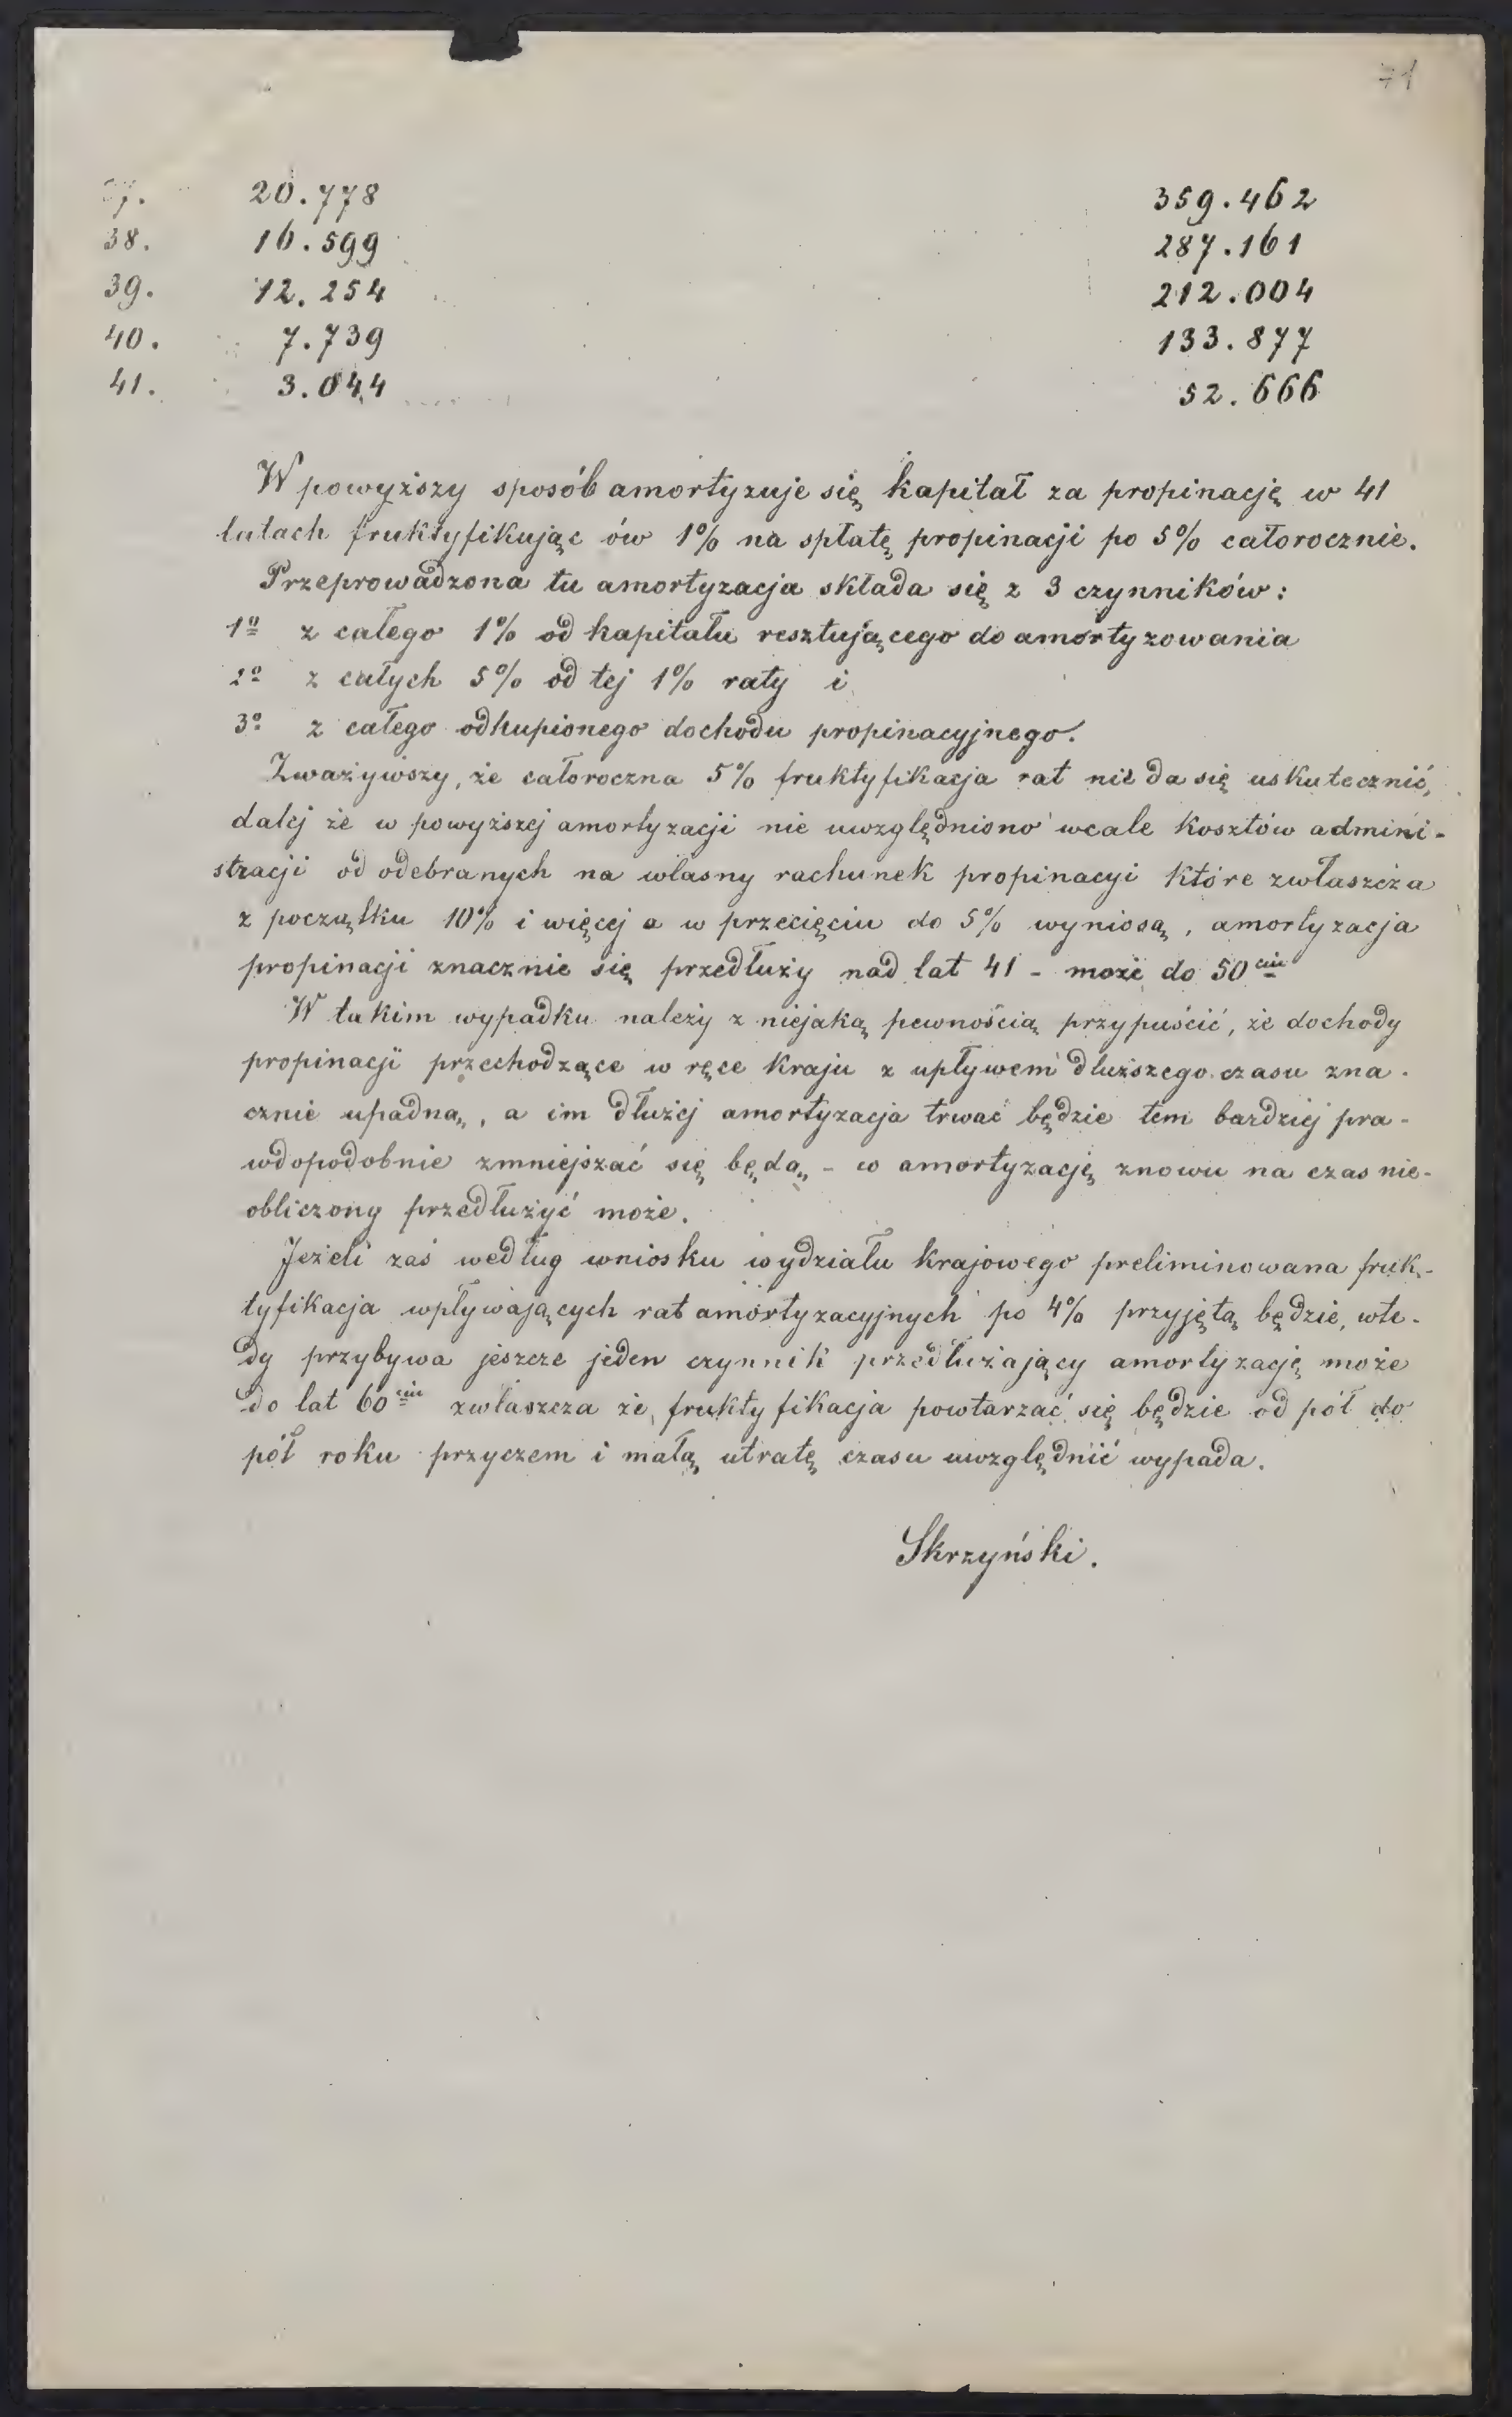 71
37. 20.778 359.462
38. 16.599 287.161
39. 12.254 212.004
40. 7.739 133.877
41. 3.044 52.666
W powyższy sposób amortyzuje się kapitał za propinację w 41
latach fruktyfikując ów 1% na spłatę propinacji po 5% całorocznie.
Przeprowadzona tu amortyzacja składa się z 3 czynników:
1º z całego 1% od kapitału resztującego do amortyzowania
2º z całych 5% od tej 1% raty i
3º z całego odkupionego dochodu propinacyjnego.
Zważywszy, że całoroczna 5% fruktyfikacja rat nie da się uskutecznić,
dalej że w powyższej amortyzacji nie uwzględniono wcale kosztów admini-
stracji od odebranych na własny rachunek propinacyi które zwłaszcza
z początku 10% i więcej a w przecięciu do 5% wyniosą, amortyzacja
propinacji znacznie się przedłuży nad lat 41 - może do 50ciu
W takim wypadku należy z niejaką pewnością przypuścić, że dochody
propinacji przechodzące w ręce kraju z upływem dłuższego czasu zna-
cznie upadną, a im dłużej amortyzacja trwać będzie tem bardziej pra-
wdopodobnie zmniejszać się będą - co amortyzację znowu na czas nie-
obliczony przedłużyć może.
Jeżeli zaś według wniosku wydziału krajowego preliminowana fruk-
tyfikacja wpływających rat amortyzacyjnych po 4% przyjętą będzie, wte-
dy przybywa jeszcze jeden czynnik przedłużający amortyzację może
do lat 60ciu zwłaszcza że fruktyfikacja powtarzać się będzie od pół do
pół roku przyczem i małą utratę czasu uwzględnić wypada.
Skrzyński.